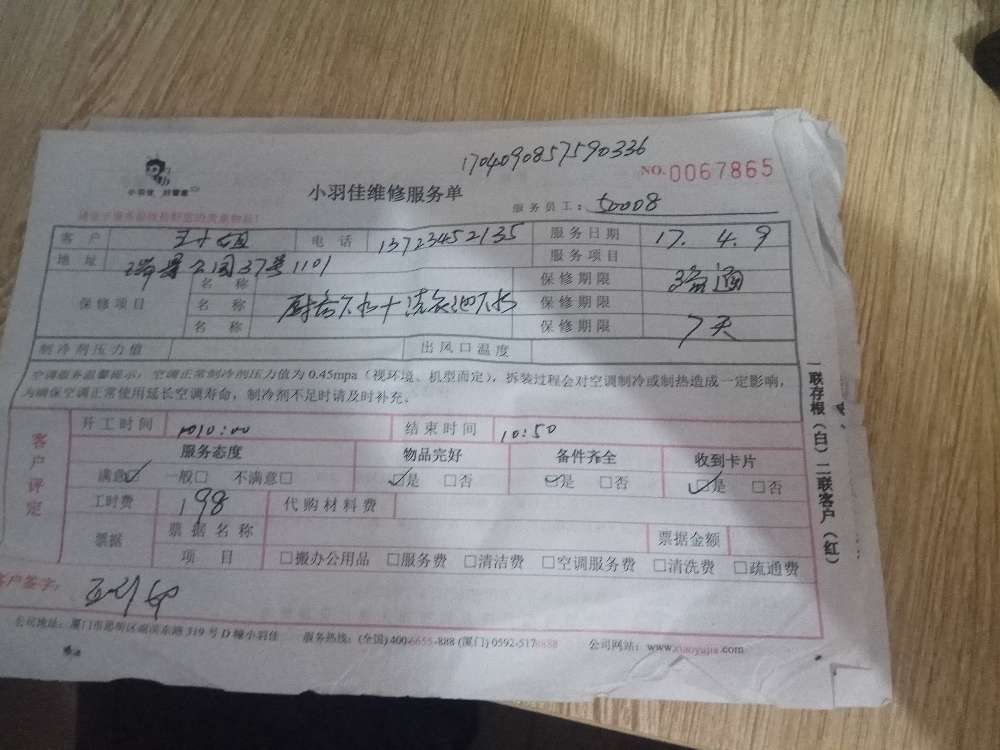 17040908575 90336
NO.0067865
小羽佳 好管家
小羽佳维修服务单
服务员工：50008
客户 王小姐 电话 13723452135 服务日期 17.4.9
地址 瑞景公园37号1101 服务项目 疏通
保修项目 名称 厨房下水+洗衣池下水 保修期限
名称 保修期限
名称 保修期限 7天
制冷剂压力值 出风口温度
空调服务温馨提示：空调正常制冷剂压力值为0.45mpa（视环境、机型而定），拆装过程会对空调制冷或制热造成一定影响，
为确保空调正常使用延长空调寿命，制冷剂不足时请及时补充。
客户评定
开工时间 10:00 结束时间 10:50
服务态度 物品完好 备件齐全 收到卡片
满意☑ 一般□ 不满意□ ☑是 □否 ☑是 □否 ☑是 □否
工时费 198 代购材料费
票据 票据名称 票据金额
项目 □搬办公用品 □服务费 □清洁费 □空调服务费 □清洗费 □疏通费
客户签字：
公司地址：厦门市思明区湖滨东路319号D幢小羽佳 服务热线：(全国)400-6655-888 (厦门)0592-5178888 公司网站：www.xiaoyujia.com
一联存根（白）二联客户（红）